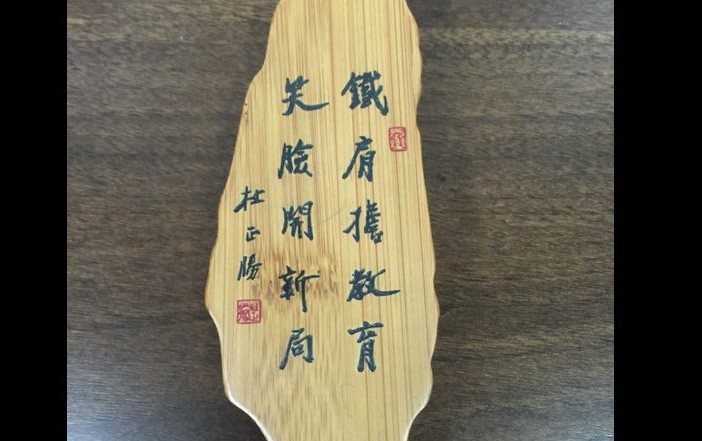 鐵肩擔教育
笑臉開新局
杜正勝